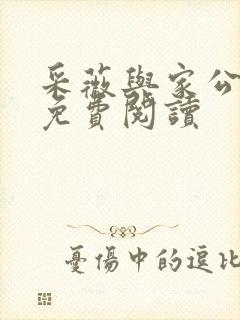 采薇與家公
免費閱讀
憂傷中的逗比